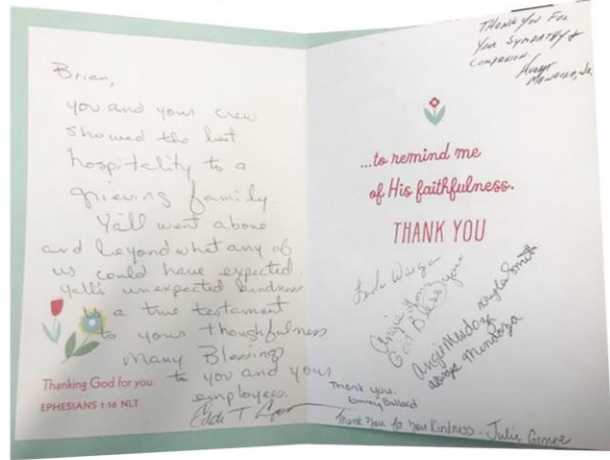 Brian,
you and your crew
showed the best
hospitality to a
grieving family.
Yall went above
and beyond what any of
us could have expected.
Yall's unexpected kindness
is a true testament
to your thoughtfulness
Many Blessings
to you and your
employees.
Thanking God for you.
EPHESIANS 1:16 NLT
THANK YOU FOR
YOUR SYMPATHY &
...to remind me
of His faithfulness.
THANK YOU
God Bless you
Angel Mendoza
Kinglee Smith
Mendoza
Thank you.
Emmy Ballard
Thank You for your Kindness - Julie Gomez